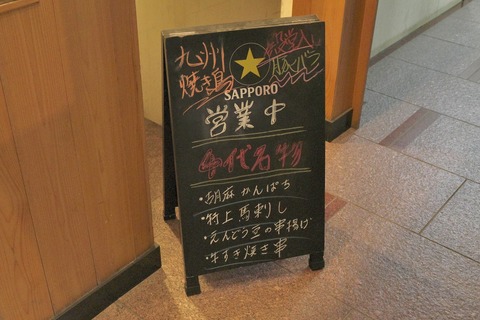 九州
焼き鳥
豚バラ
SAPPORO
営業中
名物
・胡麻かんぱち
・特上馬刺し
・えんどう豆の串揚げ
・牛すき焼き串